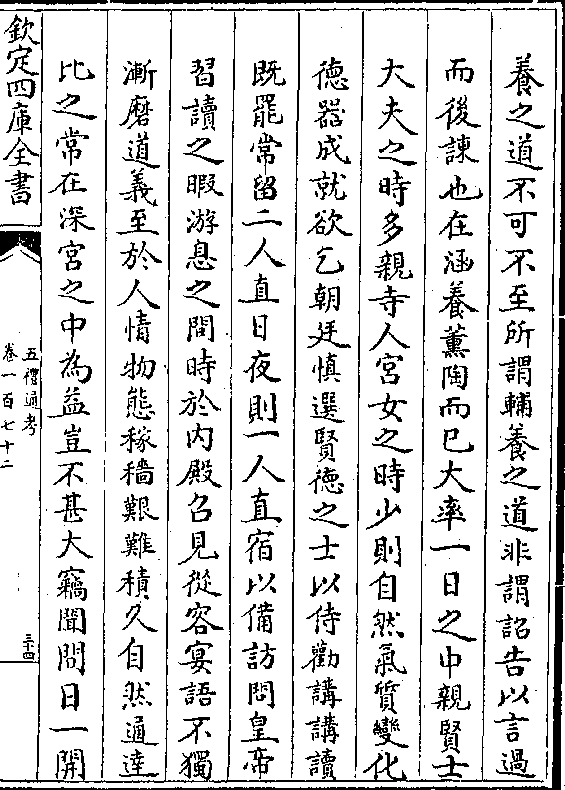 養之道不可不至所謂輔養之道非謂詔告以言過
而後諫也在涵養薰陶而已大率一日之中親賢士
大夫之時多親寺人宮女之時少則自然氣質變化
德器成就欲乞朝廷慎選賢德之士以侍勸講講讀
既罷常留二人直日夜則一人直宿以備訪問皇帝
習讀之暇游息之間時於內殿召見從容宴語不獨
漸磨道義至於人情物態稼穡艱難積久自然通達
比之常在深宮之中為益豈不甚大竊聞間日一開
欽定四庫全書
五禮通考
卷一百七十二
三十四